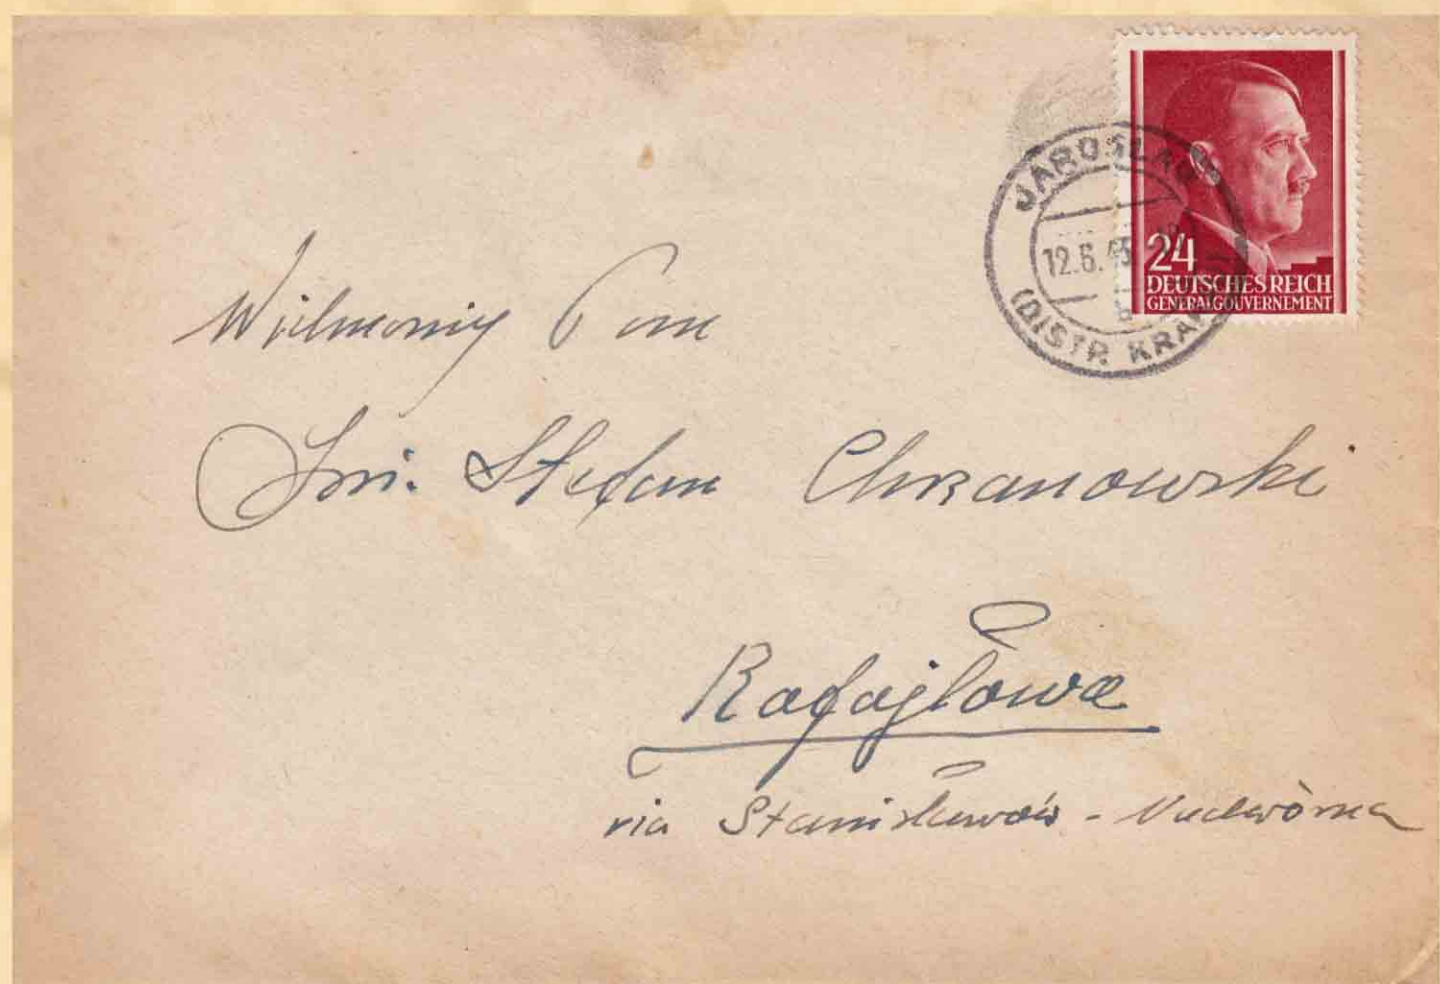 JAROSLAU
12.6.43
(DISTR. KRAK
24
DEUTSCHES REICH
GENERALGOUVERNEMENT
Wielmożny Pan
Inż. Stefan Chrzanowski
Rafajłowa
via Stanisławów - Nadwórna